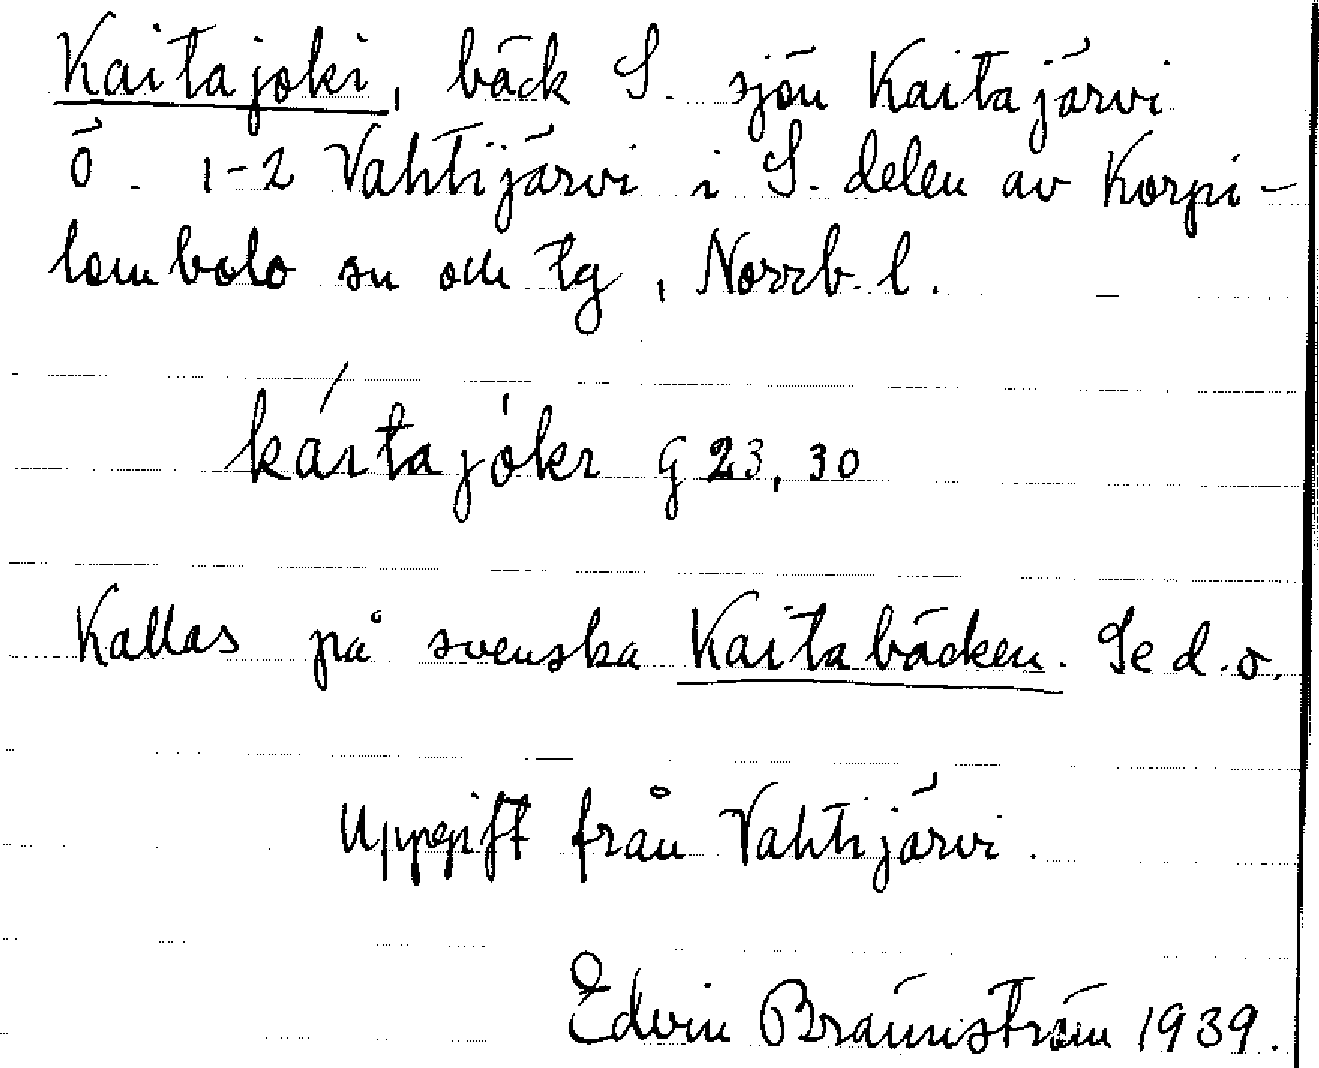 Kaitajoki, bäck S. sjön Kaitajärvi
ö. 1-2 Vahtijärvi i S. delen av Korpi-
lombolo sn och tg, Norrb. l.
káitajókı G 23, 30
Kallas på svenska Kaitabäcken. Se d. o.
Uppgift från Vahtijärvi.
Edvin Brännström 1939.